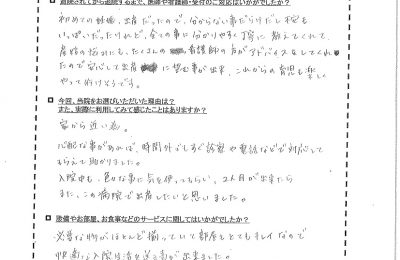 ■ 入院されてから退院するまで、医師や看護師・受付のご対応はいかがでしたか？
初めての妊娠、出産だったので、分からない事だらけだし不安も
いっぱいだったけれど、全ての事に分かりやすく丁寧に教えてくれて、
産後の悩みにも、たくさんの看護師の方がアドバイスをしてくれ
たので安心して出産に望む事が出来、これからの育児も楽しく
やって行けそうです。
■ 今回、当院をお選びいただいた理由は？
また、実際に利用してみて感じたことはありますか？
家から近い為。
心配な事があれば、時間外でもすぐ診察や電話などで対応して
もらえて助かりました。
入院中も、色々な事に気を使ってもらい、2人目が出来たら
また、この病院で出産したいと思いました。
■ 設備やお部屋、お食事などのサービスに関してはいかがでしたか？
必要な物がほとんど揃っていて部屋もとてもキレイなので
快適な入院生活を送る事が出来ました。